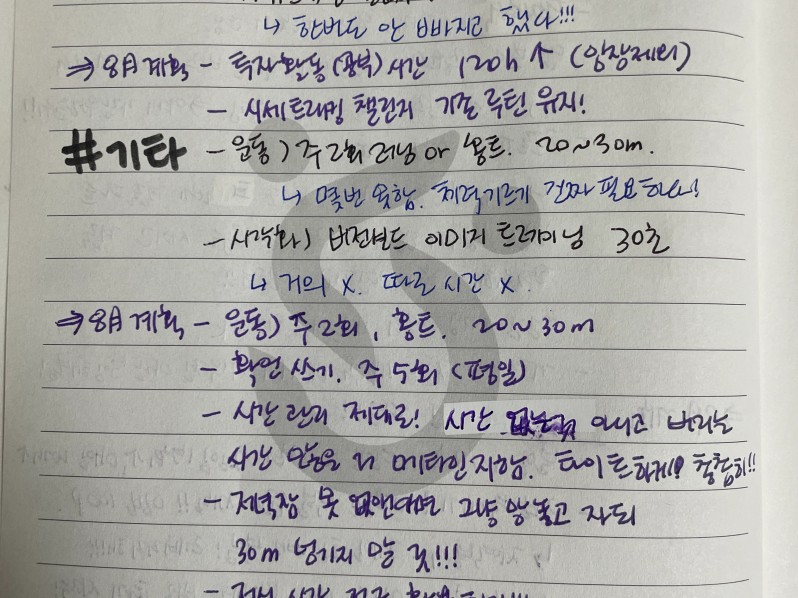 ↳ 한번도 안 빠지고 했다!!!
⇒ 8月 계획 - 투자활동(공부) 시간 120h ↑ (임장제외)
- 시세트래킹 챌린지 기존 루틴 유지!
#기타 - 운동) 주 2회 러닝 or 홈트. 20~30m.
↳ 몇번 못함. 체력기르기 진짜 필요하다!
- 시각화) 비전보드 이미지 트레이닝 30초
↳ 거의 X. 따로 시간 X.
⇒ 8月 계획 - 운동) 주 2회, 홈트. 20~30m
- 확언 쓰기. 주 5회 (평일)
- 시간 관리 제대로! 시간 없는거 아니고 버리는
시간 많음을 메타인지함. 타이트하게!! 촘촘히!!
- 저녁잠 못 없앤다면 그냥 맘 놓고 자되
30m 넘기지 말 것!!!